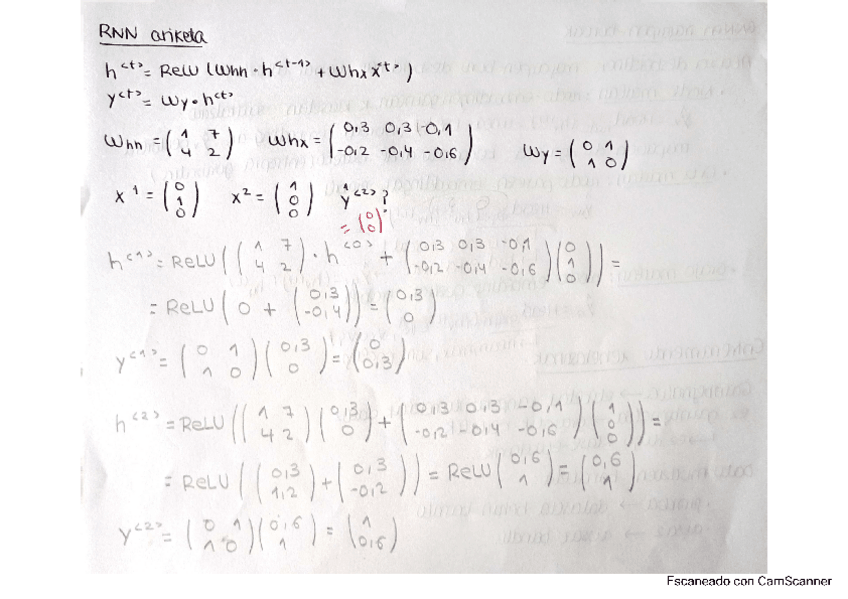 RNN ariketa
h<t> = ReLU (Whh · h<t-1> + Whx x<t>)
y<t> = Wy · h<t>
Whh = (1 7; 4 2) Whx = (0,3 0,3 -0,1; -0,2 -0,4 -0,6) Wy = (0 1; 1 0)
x1 = (0; 1; 0) x2 = (1; 0; 0) ŷ<2>?
= (0; 0)
h<1> = ReLU((1 7; 4 2) · h<0> + (0,3 0,3 -0,1; -0,2 -0,4 -0,6)(0; 1; 0)) =
= ReLU(0 + (0,3; -0,4)) = (0,3; 0)
y<1> = (0 1; 1 0)(0,3; 0) = (0; 0,3)
h<2> = ReLU((1 7; 4 2)(0,3; 0) + (0,3 0,3 -0,1; -0,2 -0,4 -0,6)(1; 0; 0)) =
= ReLU((0,3; 1,2) + (0,3; -0,2)) = ReLU(0,6; 1) = (0,6; 1)
y<2> = (0 1; 1 0)(0,6; 1) = (1; 0,6)
Escaneado con CamScanner